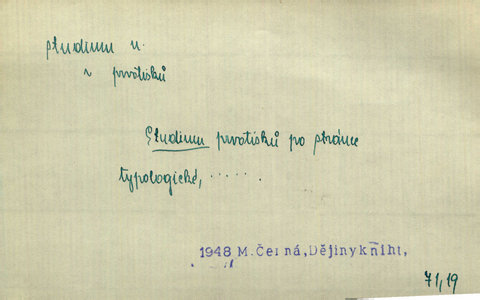 studium n.
~ prvotisků
Studium prvotisků po stránce
typologické, ......
1948 M. Černá, Dějiny kniht,
71,19